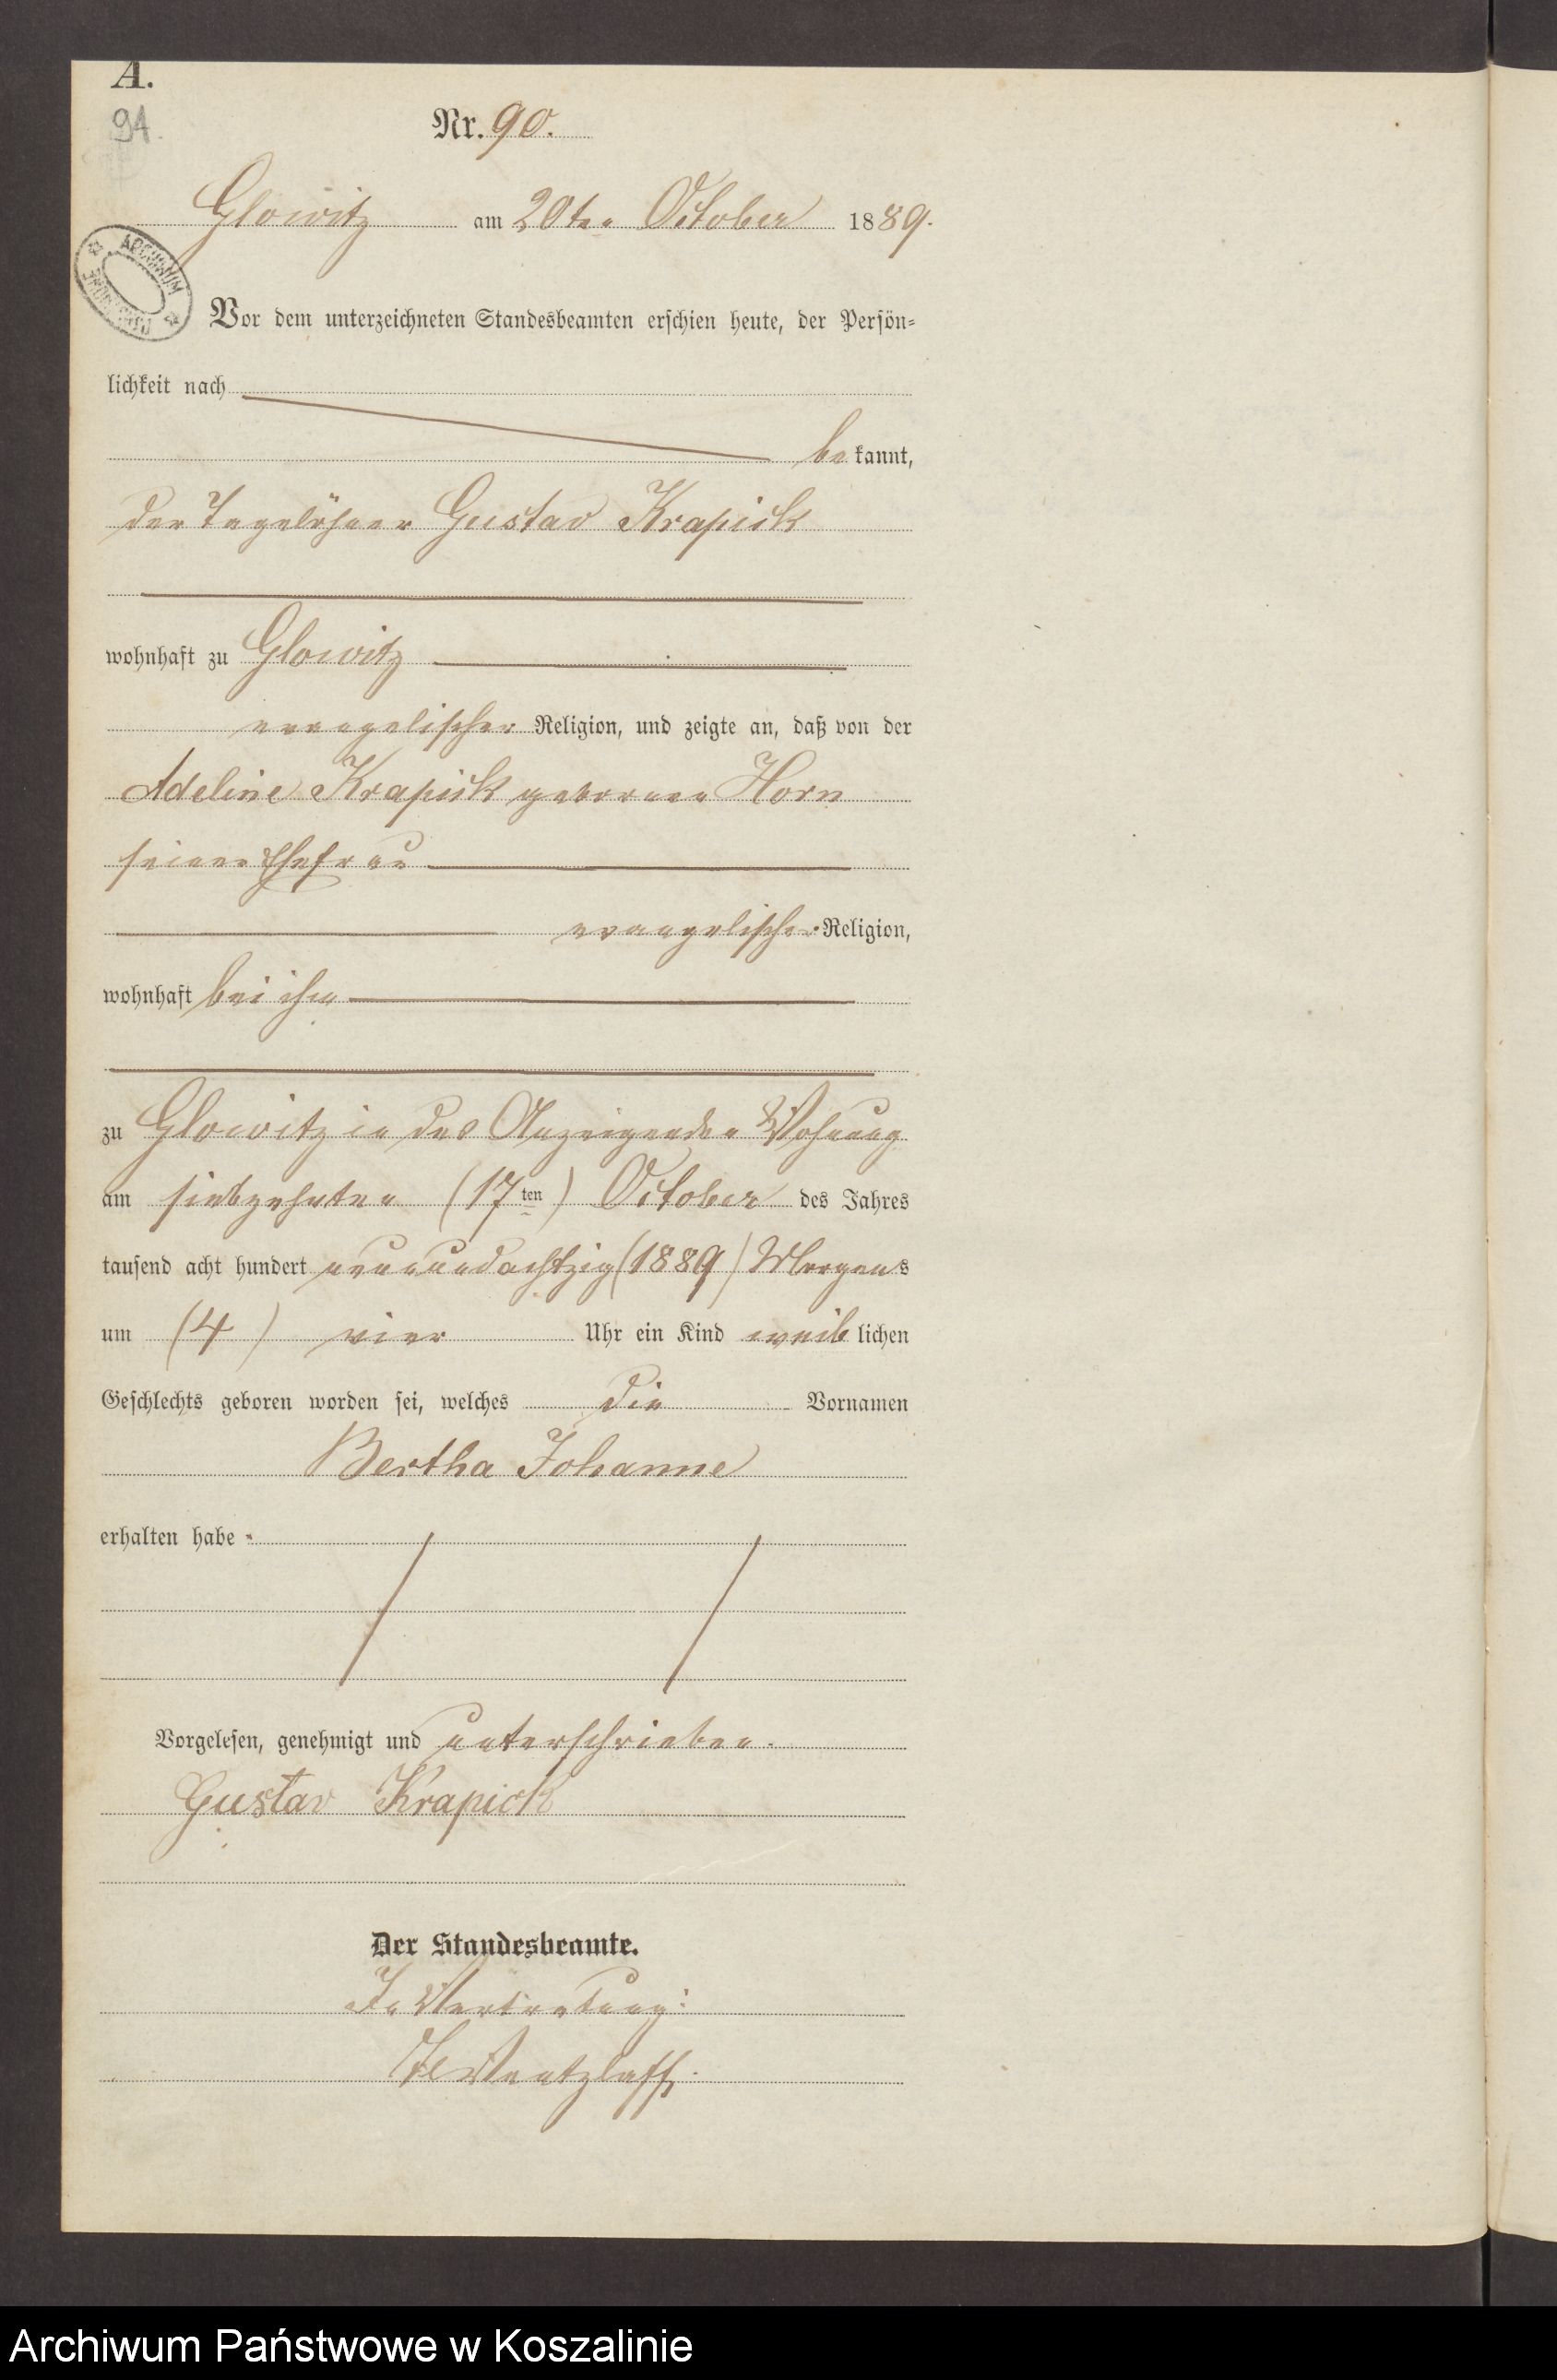 A.
94.
Nr. 90.
Glowitz am 20ten October 1889.
ARCHIWUM
Vor dem unterzeichneten Standesbeamten erschien heute, der Persön=
lichkeit nach
bekannt,
der Tagelöhner Gustav Krapick
wohnhaft zu Glowitz
evangelischer Religion, und zeigte an, daß von der
Adeline Krapick geborenen Horn
seiner Ehefrau
evangelischer Religion,
wohnhaft bei ihm
zu Glowitz in des Anzeigenden Wohnung
am siebzehnten (17ten) October des Jahres
tausend acht hundert neunundachtzig (1889) Morgens
um (4) vier Uhr ein Kind weiblichen
Geschlechts geboren worden sei, welches die Vornamen
Bertha Johanne
erhalten habe
Vorgelesen, genehmigt und unterschrieben.
Gustav Krapick
Der Standesbeamte.
In Vertretung:
Wentzlaff.
Archiwum Państwowe w Koszalinie